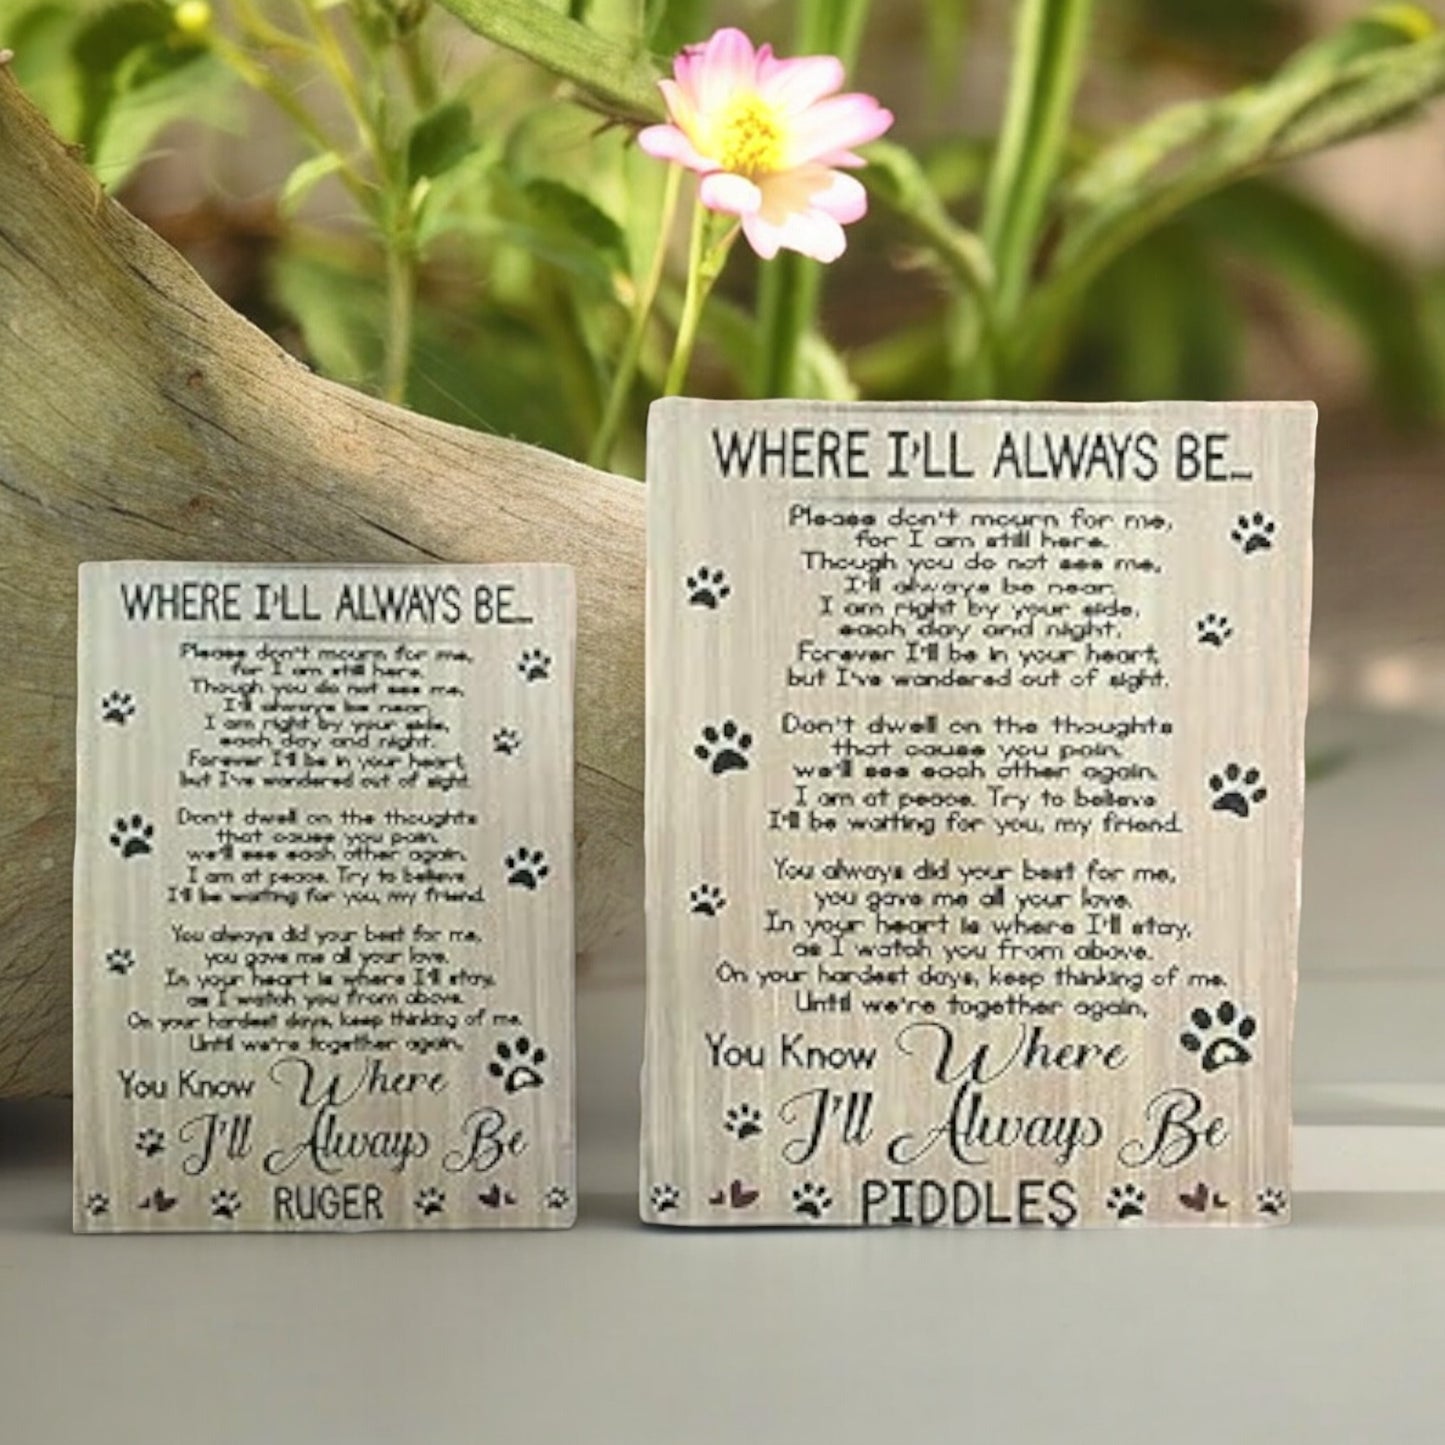 WHERE I'LL ALWAYS BE...
Please don't mourn for me,
for I am still here.
Though you do not see me,
I'll always be near.
I am right by your side,
each day and night.
Forever I'll be in your heart,
but I've wandered out of sight.
Don't dwell on the thoughts
that cause you pain,
we'll see each other again.
I am at peace. Try to believe
I'll be waiting for you, my friend.
You always did your best for me,
you gave me all your love.
In your heart is where I'll stay,
as I watch you from above.
On your hardest days, keep thinking of me.
Until we're together again,
You Know Where
I'll Always Be
RUGER
WHERE I'LL ALWAYS BE...
Please don't mourn for me,
for I am still here.
Though you do not see me,
I'll always be near.
I am right by your side,
each day and night.
Forever I'll be in your heart,
but I've wandered out of sight.
Don't dwell on the thoughts
that cause you pain,
we'll see each other again.
I am at peace. Try to believe
I'll be waiting for you, my friend.
You always did your best for me,
you gave me all your love.
In your heart is where I'll stay,
as I watch you from above.
On your hardest days, keep thinking of me.
Until we're together again,
You Know Where
I'll Always Be
PIDDLES